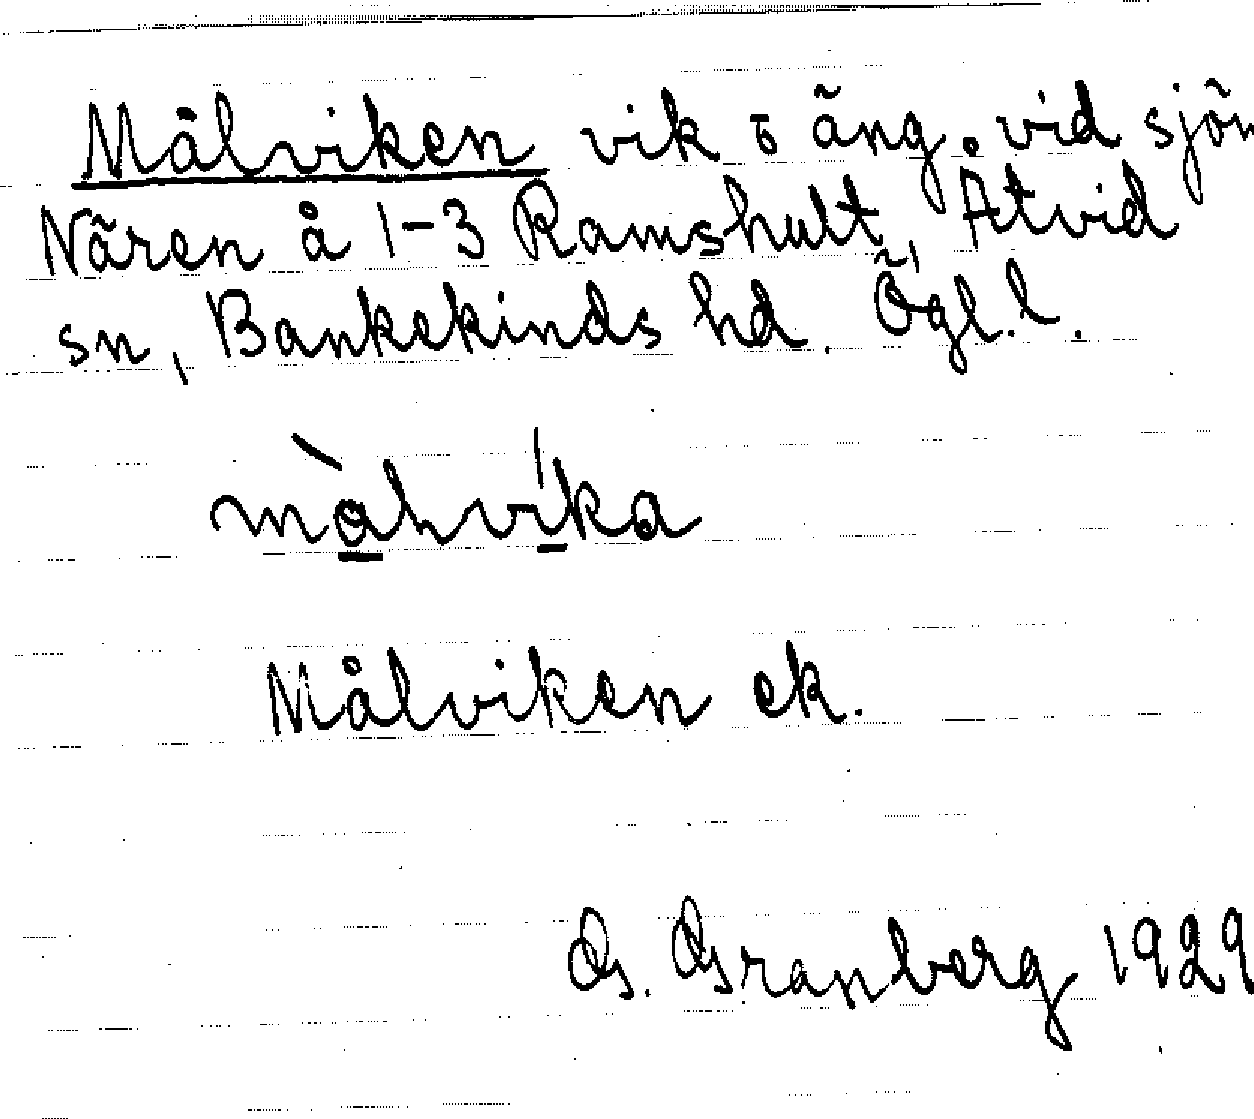 Målviken vik o äng vid sjön
Nären å 1-3 Ramshult, Åtvid
sn, Bankekinds hd. Ögl. l.
målvika
Målviken ek.
G. Granberg 1929